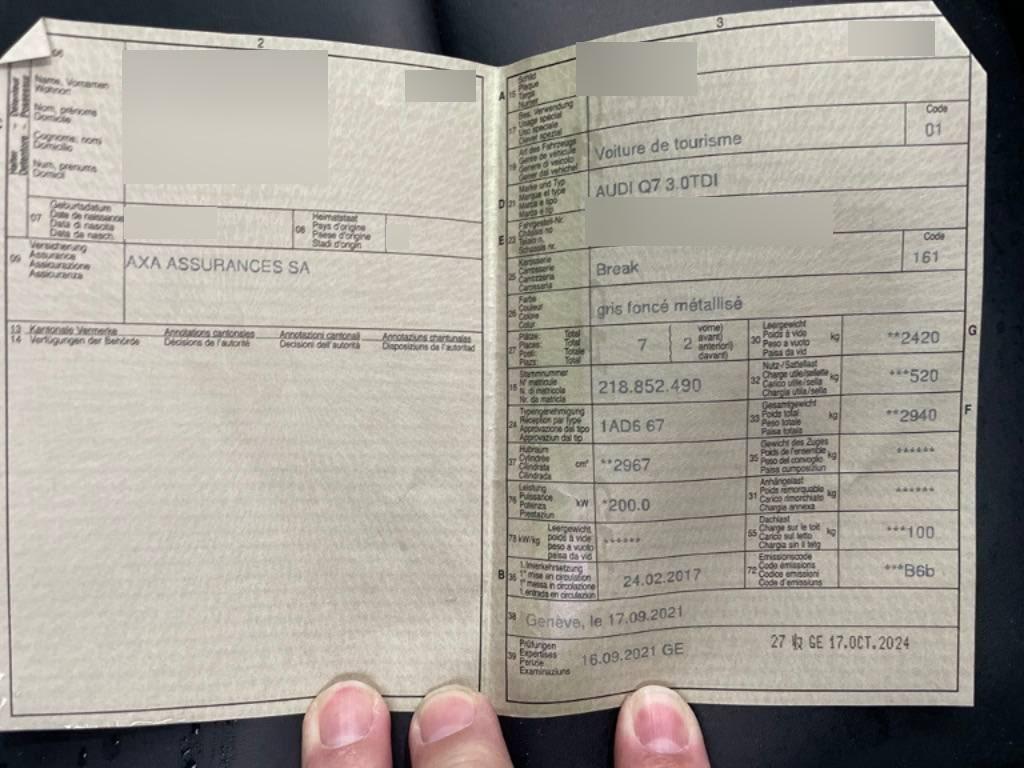 2
06
Halter - Détenteur
Detentore - Possessur
Name, Vornamen
Wohnort
Nom, prénoms
Domicile
Cognome, nomi
Domicilio
Num, prenums
Domicil
07
Geburtsdatum
Date de naissance
Data di nascita
Data da nasch.
08
Heimatstaat
Pays d'origine
Paese d'origine
Stadi d'origin
09
Versicherung
Assurance
Assicurazione
Assicuranza
AXA ASSURANCES SA
13 Kantonale Vermerke Annotations cantonales Annotazioni cantonali Annotaziuns chantunalas
14 Verfügungen der Behörde Décisions de l'autorité Decisioni dell'autorità Disposiziuns da l'autoritad
3
A 15
Schild
Plaque
Targa
Numer
17
Bes. Verwendung
Usage spécial
Uso speciale
Diever spezial
19
Art des Fahrzeugs
Genre de véhicule
Genere di veicolo
Gener dal vehichel
Voiture de tourisme
Code
01
D 21
Marke und Typ
Marque et type
Marca e tipo
Marca e tip
AUDI Q7 3.0TDI
E 23
Fahrgestell-Nr.
Châssis no
Telaio n.
Schassis nr.
25
Karosserie
Carrosserie
Carrozzeria
Carossaria
Break
Code
161
26
Farbe
Couleur
Colore
Colur
gris foncé métallisé
27
Plätze: Total
Places: Total
Posti: Totale
Plazs: Total
7
2
vorne)
avant)
anteriori)
davant)
30
Leergewicht
Poids à vide
Peso a vuoto
Paisa da vid
kg
**2420
G
18
Stammnummer
N° matricule
N. di matricola
Nr. da matricla
218.852.490
32
Nutz-/Sattellast
Charge utile/sellette
Carico utile/sella
Chargia utila/sella
kg
***520
24
Typengenehmigung
Réception par type
Approvazione del tipo
Approvaziun dal tip
1AD6 67
33
Gesamtgewicht
Poids total
Peso totale
Paisa totala
kg
**2940
F
37
Hubraum
Cylindrée
Cilindrata
Cilindrada
cm³
**2967
35
Gewicht des Zuges
Poids de l'ensemble
Peso del convoglio
Paisa cumposiziun
kg
******
76
Leistung
Puissance
Potenza
Prestaziun
kW
*200.0
31
Anhängelast
Poids remorquable
Carico rimorchiato
Chargia annexa
kg
******
78 kW/kg
Leergewicht
poids à vide
peso a vuoto
paisa da vid
******
55
Dachlast
Charge sur le toit
Carico sul tetto
Chargia sin il tetg
kg
***100
B 36
1. Inverkehrsetzung
1re mise en circulation
1a messa in circolazione
1. entrada en circulaziun
24.02.2017
72
Emissionscode
Code émissions
Codice emissioni
Code d'emissiuns
***B6b
38
Genève, le 17.09.2021
39
Prüfungen
Expertises
Perizie
Examinaziuns
16.09.2021 GE
27
GE 17.OCT.2024